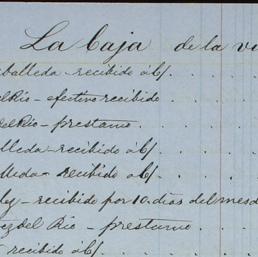 La Caja de la vi
balleda - recibido á b/
el Rio - efectivo recibido
del Rio - prestamo
lleda - recibido á b/
lleda - recibido á b/
dy - recibido por 10 dias del mes de
ez del Rio - prestamo
recibido á b/